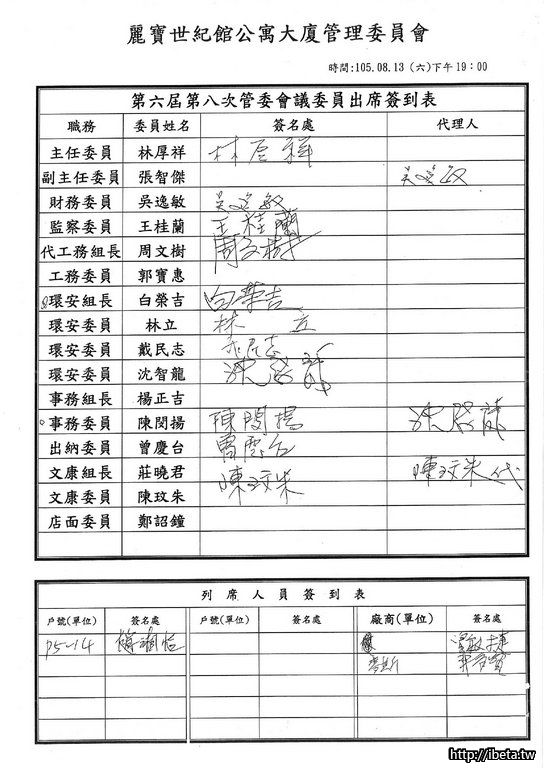 麗寶世紀館公寓大廈管理委員會
時間:105.08.13 (六)下午19:00
第六屆第八次管委會議委員出席簽到表
職務 委員姓名 簽名處 代理人
主任委員 林厚祥 林厚祥
副主任委員 張智傑 吳逸敏
財務委員 吳逸敏 吳逸敏
監察委員 王桂蘭 王桂蘭
代工務組長 周文樹 周文樹
工務委員 郭寶惠
環安組長 白榮吉 白榮吉
環安委員 林立 林 立
環安委員 戴民志
環安委員 沈智龍 沈
事務組長 楊正吉
事務委員 陳閔揚 陳閔揚 沈
出納委員 曾慶台 曾慶台
文康組長 莊曉君 陳玟朱代
文康委員 陳玟朱 陳玟朱
店面委員 鄭詔鐘
列席人員簽到表
戶號(單位) 簽名處 戶號(單位) 簽名處 廠商(單位) 簽名處
P5-14
http://ibeta.tw